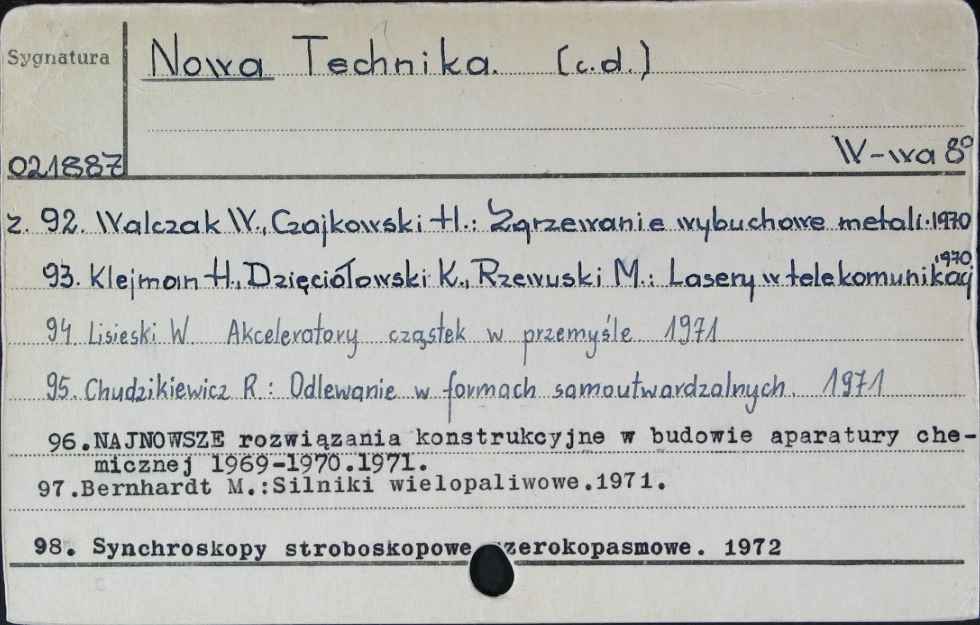 Sygnatura
Nowa Technika. (c.d.)
021887
W-wa 8°
z. 92. Walczak W., Czajkowski H.: Zgrzewanie wybuchowe metali. 1970
93. Klejman H., Dzięciołowski K., Rzewuski M.: Lasery w telekomunikacj 1970
94. Lisieski W. Akceleratory cząstek w przemyśle 1971
95. Chudzikiewicz R: Odlewanie w formach samoutwardzalnych. 1971
96.NAJNOWSZE rozwiązania konstrukcyjne w budowie aparatury che-
micznej 1969-1970.1971.
97.Bernhardt M.:Silniki wielopaliwowe.1971.
98. Synchroskopy stroboskopowe zerokopasmowe. 1972